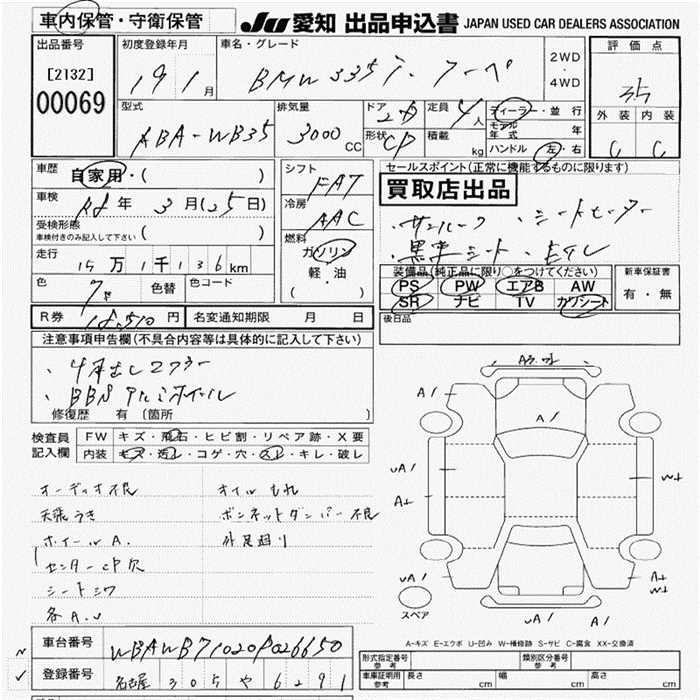 車内保管・守衛保管
JU 愛知 出品申込書 JAPAN USED CAR DEALERS ASSOCIATION
出品番号 初度登録年月 車名・グレード 評価点
[2132]
00069
19 1月
BMW 335i クーペ
2WD
・
4WD
35
型式 排気量 ドア 定員 ディーラー・並行 外装 内装
ABA-WB35 3000 CC
2 4人
モデル年式 年
形状 CP 積載 kg ハンドル 左・右
C C
車歴 自家用・( )
シフト FAT
セールスポイント(正常に機能するものに限ります)
車検 年 3月(25日)
冷房 AAC
買取店出品
受検形態
車検付きのみ記入して下さい ( )
燃料 ガソリン
軽・油
( ・ )
・サンルーフ ・シートヒーター
・黒革シート ・ETC
走行 15万1千136km
装備品(純正品に限り○をつけてください) 新車保証書
色 色替 色コード
PS PW エアB AW
SR ナビ TV カワシート
有・無
R券 18,510円 名変通知期限 月 日
後日品
注意事項申告欄(不具合内容等は具体的に記入して下さい)
・BBSアルミホイール
修復歴 有 (箇所 )
検査員記入欄
FW キズ・飛石・ヒビ割・リペア跡・X要
内装 キズ・汚レ・コゲ・穴・スレ・キレ・破レ
オーディオ不良 オイルもれ
天張うき ボンネットダンパー不良
ホイールA. 外足廻り
センターCP欠
シートシワ
A A A
スペア
A-キズ E-エクボ U-凹み W-補修跡 S-サビ C-腐食 XX-交換済
車台番号 WBAWB71020P026650
登録番号 名古屋 305 や 6291
形式指定番号 参考 類別区分番号 参考
車庫証明用 参考 長さ cm 幅 cm 高さ cm